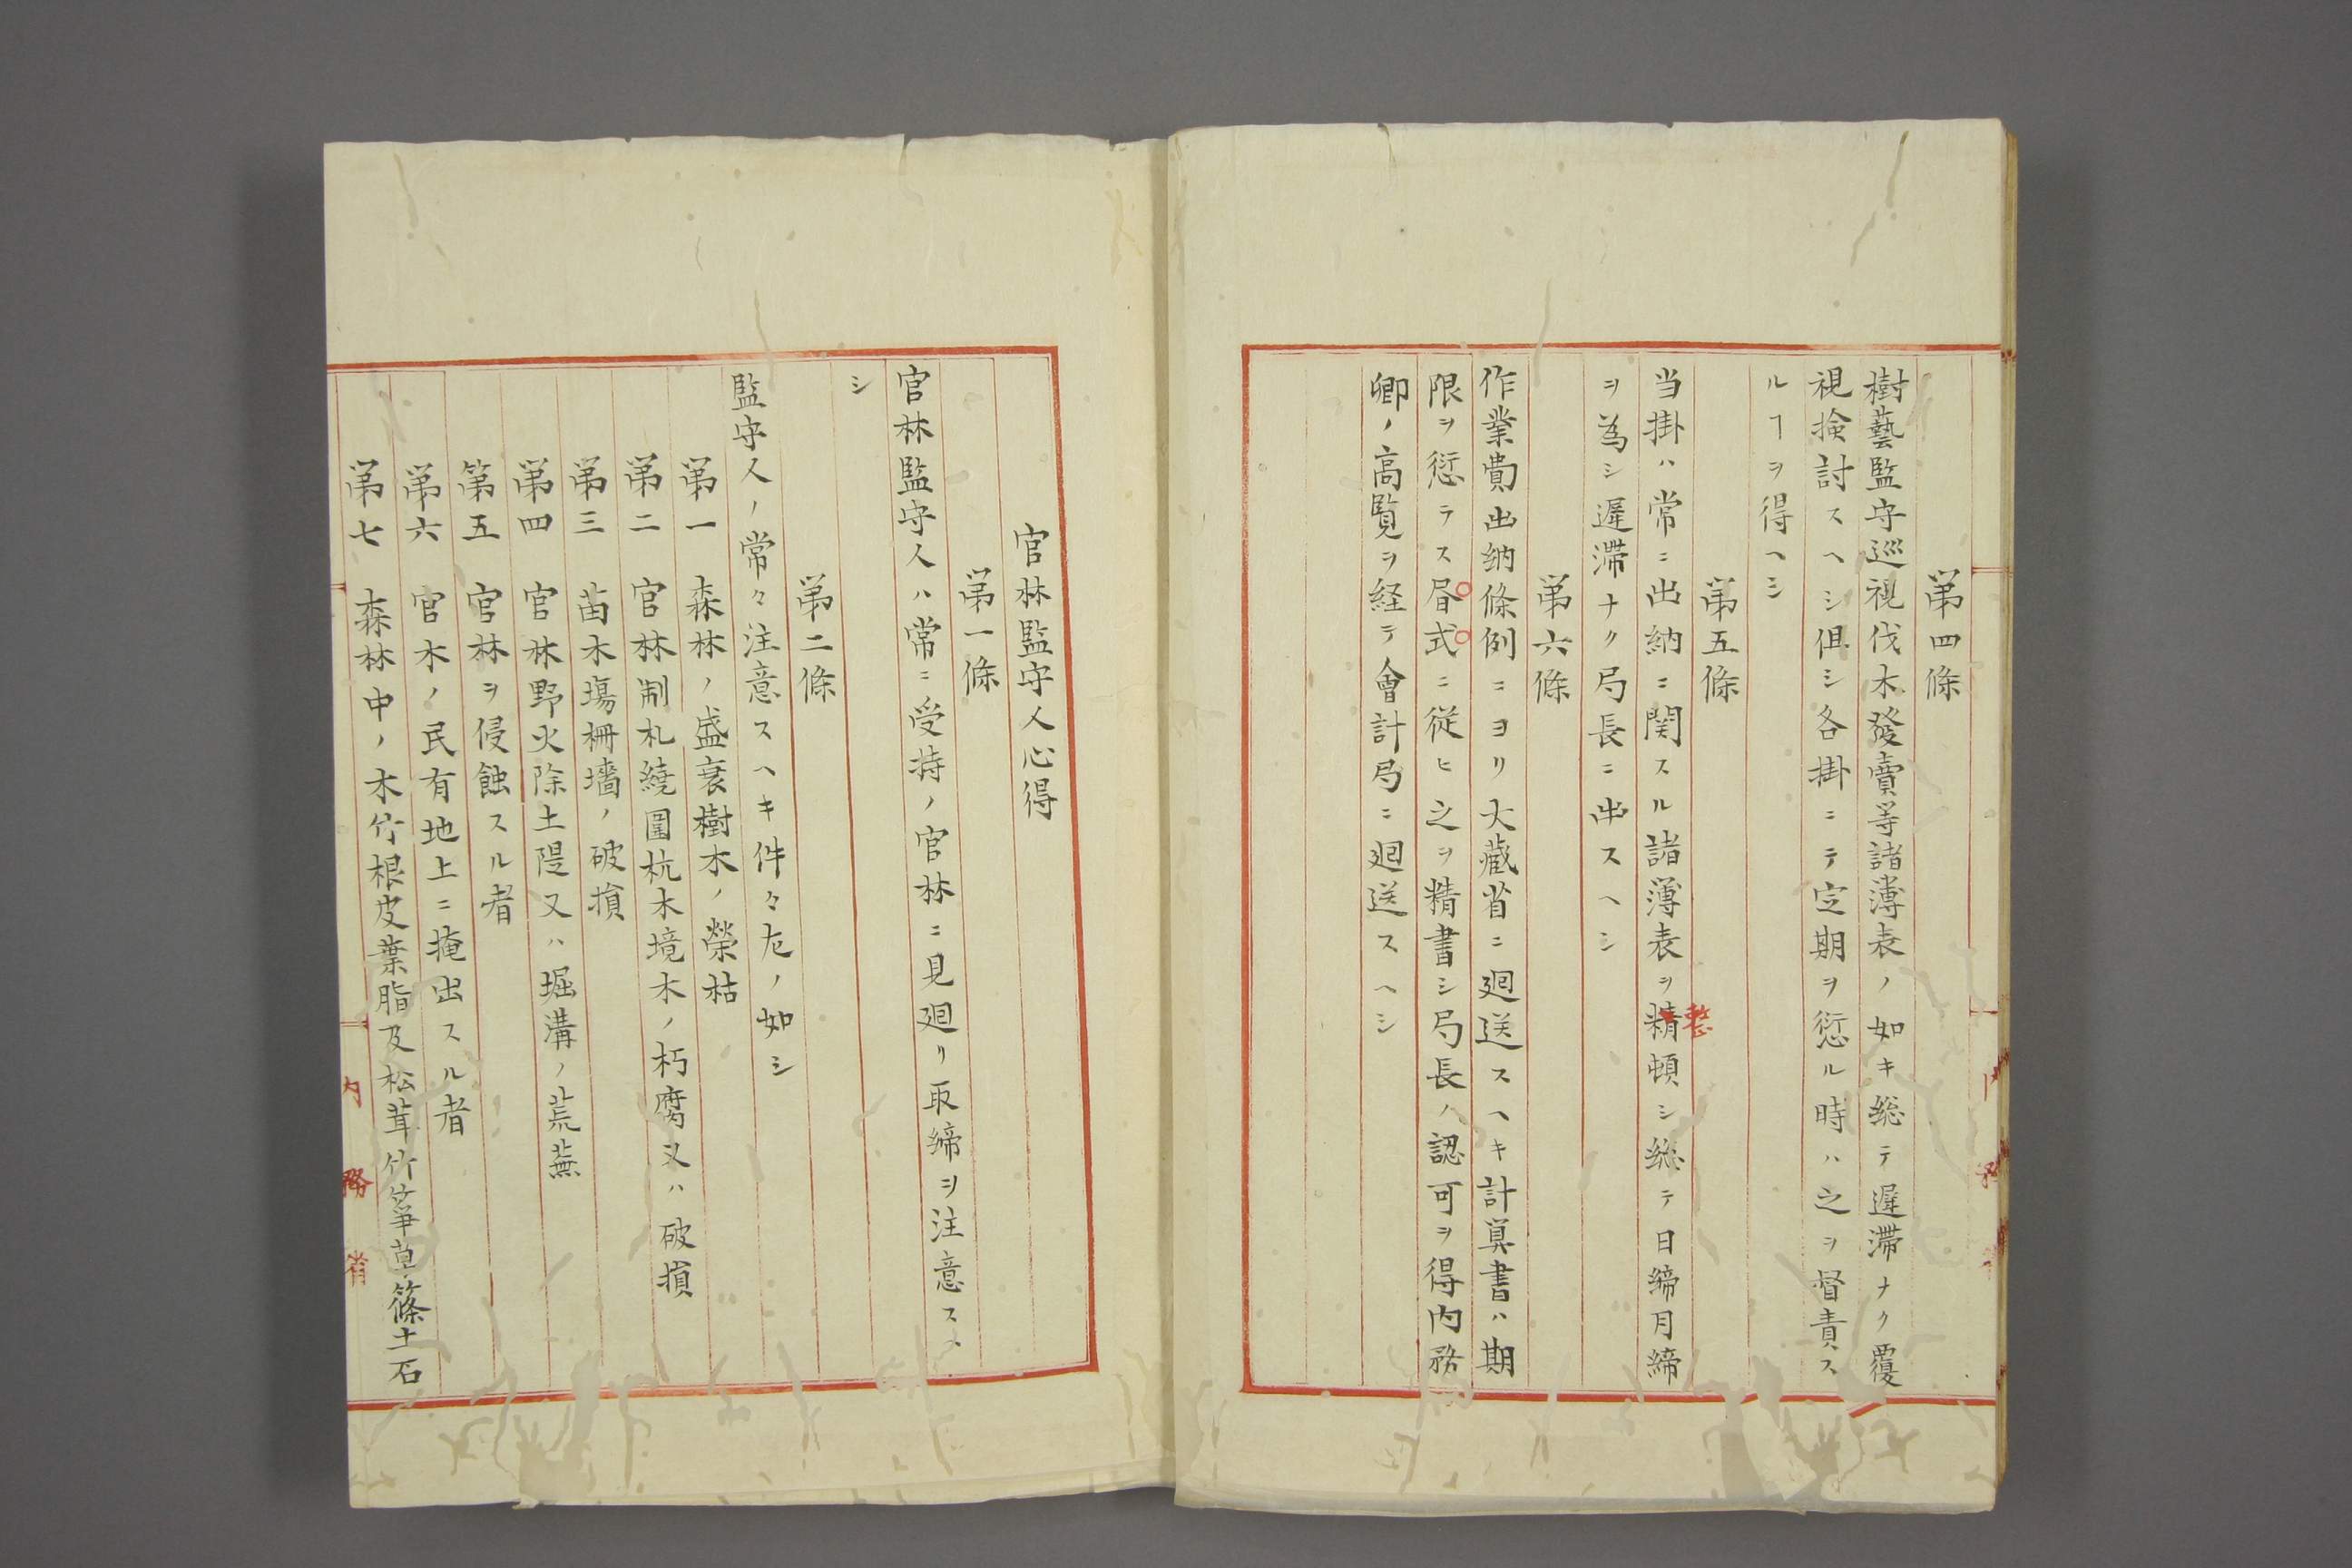 第四條
樹藝監守巡視伐木發賣等諸薄表ノ如キ総テ遅滞ナク覆
視撿討スヘシ俱シ各掛ニテ定期ヲ愆ル時ハ之ヲ督責ス
ルヿヲ得ヘシ
第五條
当掛ハ常ニ出納ニ関スル諸薄表ヲ精頓シ総テ日締月締
整
ヲ為シ遅滞ナク局長ニ出スヘシ
第六條
作業費出納條例ニヨリ大藏省ニ廻送スヘキ計算書ハ期
限ヲ愆ラス㞐式ニ従ヒ之ヲ精書シ局長ノ認可ヲ得内務
卿ノ高覧ヲ経テ會計局ニ廻送スヘシ
官林監守人心得
第一條
官林監守人ハ常ニ受持ノ官林ニ見廻リ取締ヲ注意スヘ
シ
第二條
監守人ノ常々注意スヘキ件々左ノ如シ
第一 森林ノ盛衰樹木ノ榮枯
第二 官林制札繞圍杭木境木ノ朽腐又ハ破損
第三 苗木塲柵墻ノ破損
第四 官林野火除土隄又ハ堀溝ノ荒蕪
第五 官林ヲ侵蝕スル者
第六 官木ノ民有地上ニ掩出スル者
第七 森林中ノ木竹根皮葉脂及松茸竹筝草篠土石
内務省